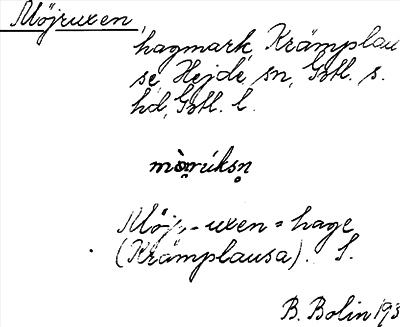 Möjruxen,
hagmark, Krämplau
se, Hejde, sn, Gotl. s.
hd, Gotl. l.
Möj,-uxen = hage
(Krämplausa). S.
B. Bolin 193